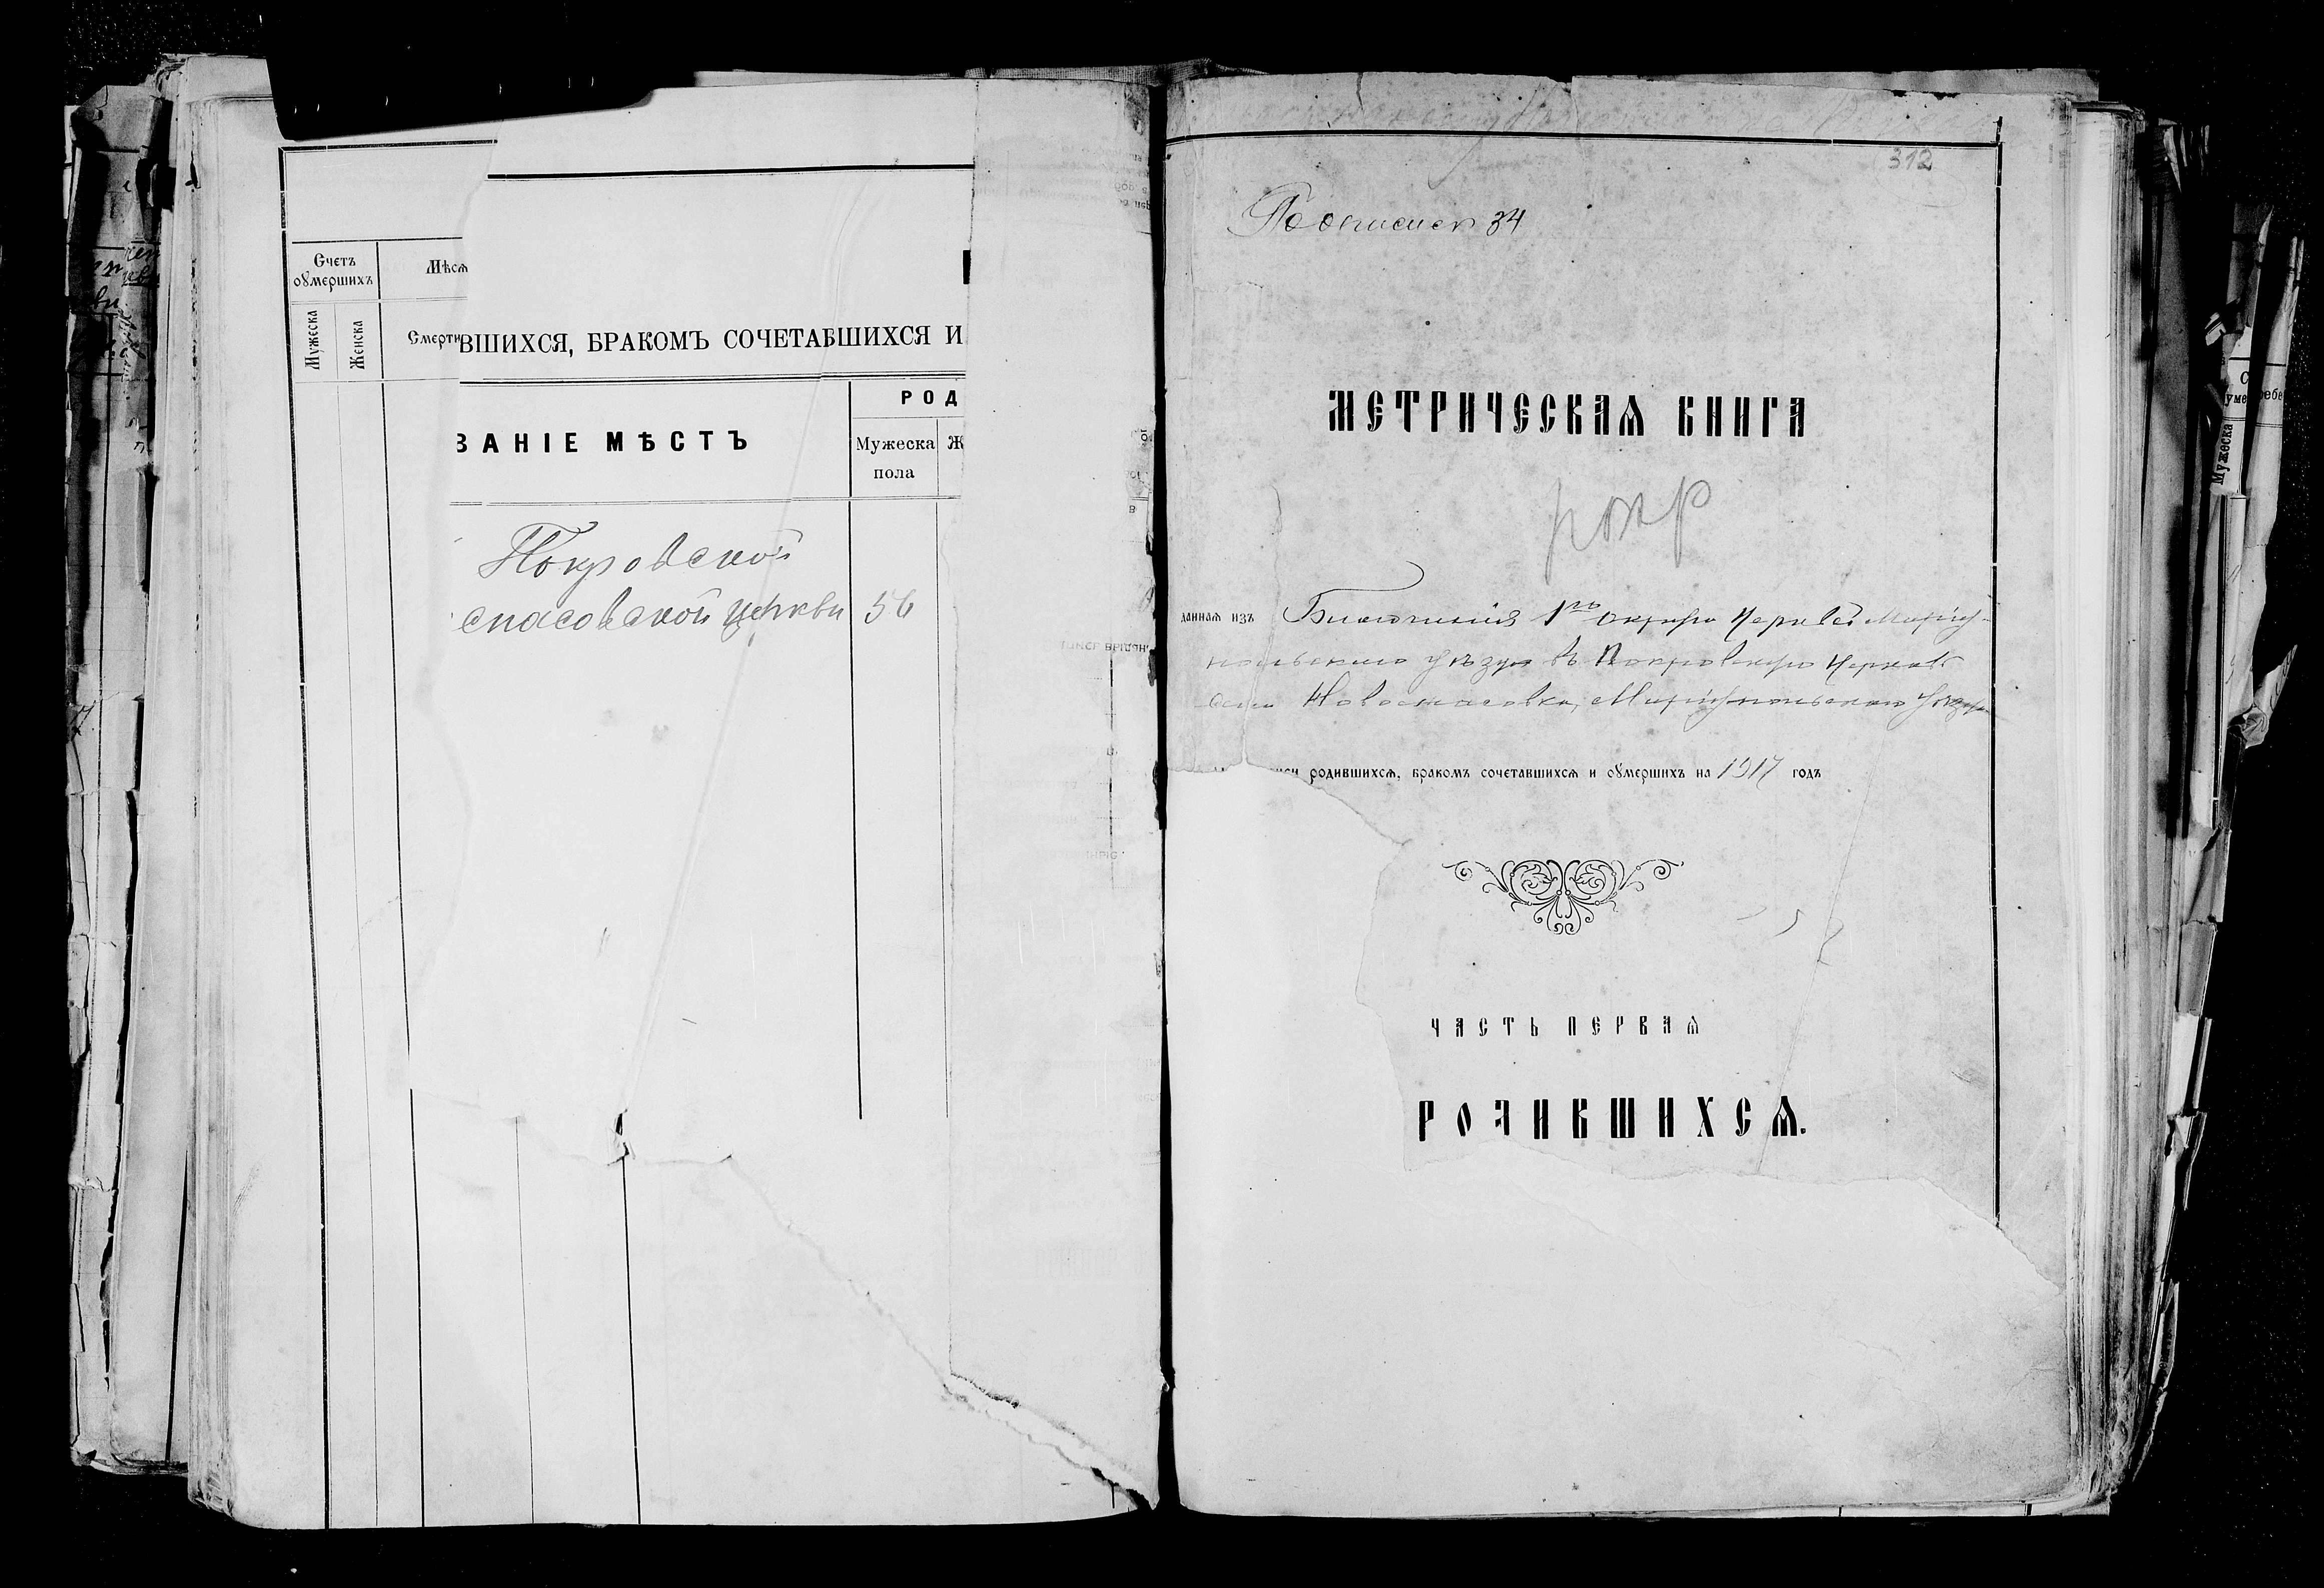 Счетъ оумершихъ
Мѣся
Мужеска
Женска
Смерти
ВШИХСЯ, БРАКОМЪ СОЧЕТАВШИХСЯ И
РОД
ВАНІЕ МѢСТЪ
Мужеска пола
Ж
Покровской
спасовской церкви 56
312
34
МЕТРИЧЕСКАѦ КНИГА
даннаѧ изъ Благочинія 1го округа Церквей Маріу-
польскаго уѣзда въ Покровскую Церковь
села Новоспасовка, Маріупольскаго уѣзда
родившихсѧ, бракомъ сочетавшихсѧ и оумершихъ на 1917 годъ
ЧАСТЬ ПЕРВАѦ
РОДИВШИХСѦ.
Мужеска